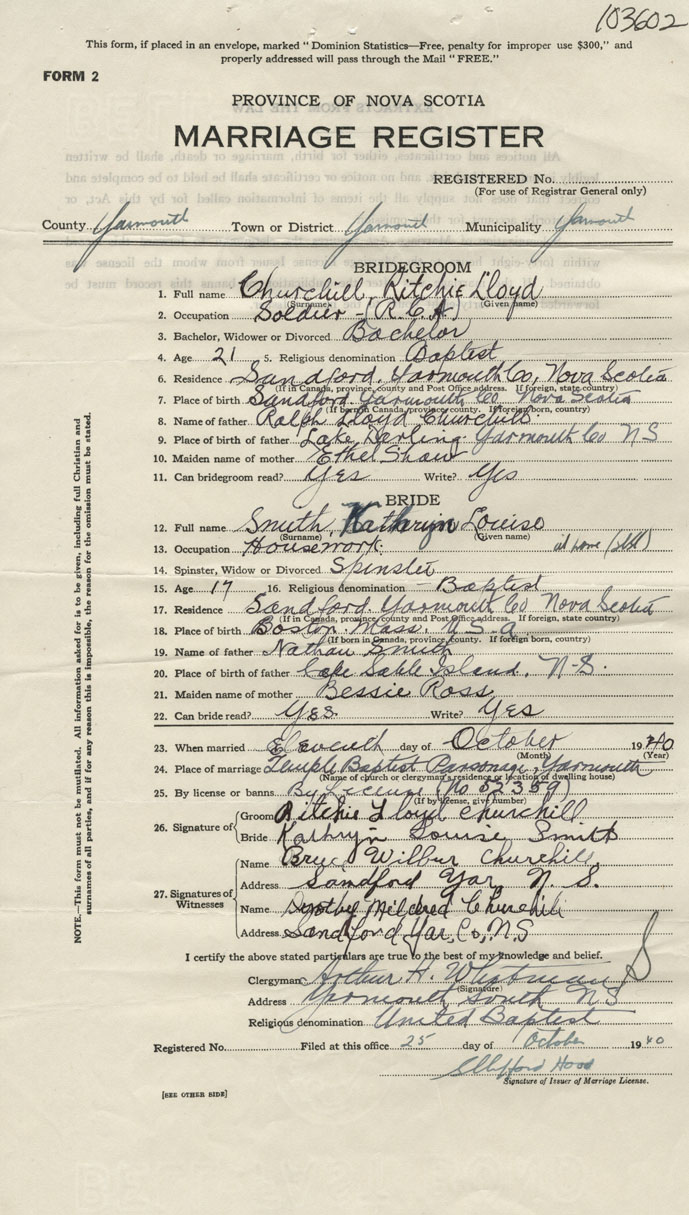 103602
This form, if placed in an envelope, marked "Dominion Statistics—Free, penalty for improper use $300," and
properly addressed will pass through the Mail "FREE."
FORM 2
PROVINCE OF NOVA SCOTIA
MARRIAGE REGISTER
REGISTERED No.
(For use of Registrar General only)
County Yarmouth Town or District Yarmouth Municipality Yarmouth
BRIDEGROOM
1. Full name Churchill, Ritchie Lloyd
(Surname) (Given name)
2. Occupation Soldier - (R.C.A)
3. Bachelor, Widower or Divorced Bachelor
4. Age 21 5. Religious denomination Baptist
6. Residence Sandford. Yarmouth Co, Nova Scotia
(If in Canada, province, county and Post Office address. If foreign, state country)
7. Place of birth Sandford. Yarmouth Co Nova Scotia
(If born in Canada, province, county. If foreign born, country)
8. Name of father Ralph Lloyd Churchill.
9. Place of birth of father Lake Darling. Yarmouth Co NS
10. Maiden name of mother Ethel Shaw
11. Can bridegroom read? Yes Write? Yes
BRIDE
12. Full name Smith, Kathryn Louise
(Surname) (Given name)
13. Occupation Housework. at home
14. Spinster, Widow or Divorced Spinster
15. Age 17 16. Religious denomination Baptist
17. Residence Sandford. Yarmouth Co Nova Scotia
(If in Canada, province, county and Post Office address. If foreign, state country)
18. Place of birth Boston. Mass. U.S.A.
(If born in Canada, province, county. If foreign born, country)
19. Name of father Nathan Smith
20. Place of birth of father Cape Sable Island. N.S.
21. Maiden name of mother Bessie Ross
22. Can bride read? Yes. Write? Yes
23. When married Eleventh day of October 1940
(Month) (Year)
24. Place of marriage Temple Baptist Parsonage, Yarmouth
(Name of church or clergyman's residence or location of dwelling house)
25. By license or banns By License (No 52359)
(If by license, give number)
26. Signature of
Groom Ritchie Lloyd Churchill
Bride Kathryn Louise Smith
27. Signatures of Witnesses
Name Bruce Wilbur Churchill
Address Sandford Yar. N.S.
Name Dorothy Mildred Churchill
Address Sandford Yar, Co, N.S
I certify the above stated particulars are true to the best of my knowledge and belief.
Clergyman Arthur H. Whitman
(Signature)
Address Yarmouth South NS
Religious denomination United Baptist
Registered No. Filed at this office 25 day of October 1940
Clifford Hood
Signature of Issuer of Marriage License.
[SEE OTHER SIDE]
NOTE.—This form must not be mutilated. All information asked for is to be given, including full Christian and
surnames of all parties, and if for any reason this is impossible, the reason for the omission must be stated.